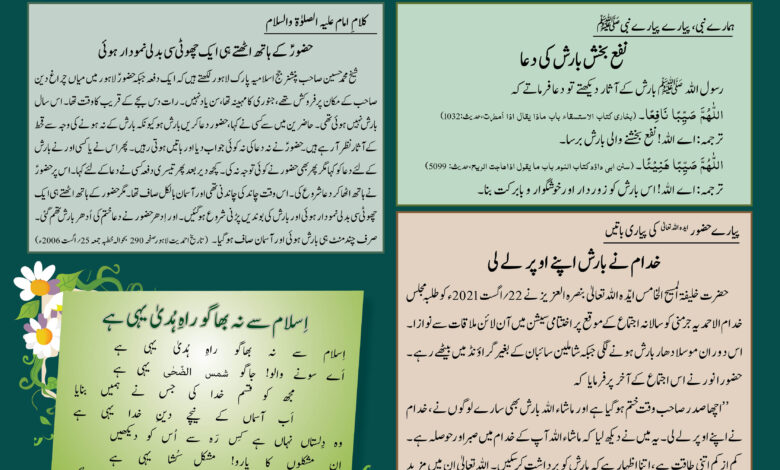 ہمارے نبی، پیارے پیارے نبی ﷺ
نفع بخش بارش کی دعا
رسول اللہ ﷺ بارش کے آثار دیکھتے تو دعا فرماتے کہ
اَللّٰهُمَّ صَيِّبًا نَافِعًا۔ (بخاری کتاب الاستسقاء باب ماذا یقال اذا امطرت، حدیث:1032)
ترجمہ: اے اللہ! نفع بخشنے والی بارش برسا۔
اَللّٰهُمَّ صَيِّبًا هَنِيْئًا۔ (سنن ابی داؤد کتاب النوم باب ما یقول اذا هاجت الریح، حدیث: 5099)
ترجمہ: اے اللہ! اس بارش کو زوردار اور خوشگوار و بابرکت بنا۔
پیارے حضور ایدہ اللہ تعالیٰ کی پیاری باتیں
خدام نے بارش اپنے اوپر لے لی
حضرت خلیفۃ المسیح الخامس ایّدہ اللہ تعالیٰ بنصرہ العزیز نے ۲۲؍اگست 2021ء کو طلبہ مجلس
خدام الاحمدیہ جرمنی کو سالانہ اجتماع کے موقع پر اختتامی سیشن میں آن لائن ملاقات سے نوازا۔
اس دوران موسلا دھار بارش ہونے لگی جبکہ شاملین سائبان کے بغیر گراؤنڈ میں بیٹھے رہے۔
حضور انور نے اس اجتماع کے آخر پر فرمایا کہ
’’اچھا صدر صاحب وقت ختم ہو گیا ہے اور ماشاء اللہ بارش بھی سارے لوگوں نے، خدام
نے اپنے اوپر لے لی۔ یہ میں نے دیکھ لیا کہ ماشاء اللہ آپ کے خدام میں صبر اور حوصلہ ہے۔
کم از کم اتنی طاقت ہے، اتنا اظہار ہے کہ بارش کو برداشت کر سکیں۔ اللہ تعالیٰ ان میں مزید
کلامِ امام علیہ الصلوٰۃ والسلام
حضورؑ کے ہاتھ اٹھتے ہی ایک چھوٹی سی بدلی نمودار ہوئی
شیخ محمد حسین صاحب پنشنر جج اسلامیہ پارک لاہور لکھتے ہیں کہ ایک دفعہ جبکہ حضورؑ لاہور میں میاں چراغ دین
صاحب کے مکان پر فروکش تھے، جنوری کا مہینہ تھا، سن یاد نہیں۔ رات دس بجے کے قریب کا وقت تھا۔ اس سال
بارش نہیں ہوئی تھی۔ حاضرین میں سے کسی نے کہا، حضور دعا کریں بارش ہو کیونکہ بارش کے نہ ہونے کی وجہ سے قحط
کے آثار نظر آ رہے ہیں۔ حضورؑ نے نہ دعا کی نہ کوئی جواب دیا اور باتیں ہوتی رہیں۔ پھر اس نے یا کسی اور نے بارش
کے لئے دعا کو کہا مگر پھر بھی حضور نے کوئی توجہ نہ کی۔ کچھ دیر بعد پھر تیسری دفعہ کسی نے دعا کے لئے کہا۔ اس پر حضورؑ
نے ہاتھ اٹھا کر دعا شروع کی۔ اس وقت چاند کی چاندنی تھی اور آسمان بالکل صاف تھا۔ مگر حضور کے ہاتھ اٹھتے ہی ایک
چھوٹی سی بدلی نمودار ہوئی اور بارش کی بوندیں پڑنی شروع ہو گئیں۔ اور ادھر حضور نے دعا ختم کی اُدھر بارش تھم گئی۔
صرف چند منٹ ہی بارش ہوئی اور آسمان صاف ہو گیا۔ (تاریخ احمدیت لاہور صفحہ 290 بحوالہ خطبہ جمعہ 25؍اگست 2006ء)
اِسلام سے نہ بھاگو راہِ ہُدیٰ یہی ہے
اِسلام سے نہ بھاگو راہِ ہُدیٰ یہی ہے
اَے سونے والو! جاگو شمس الضّحٰی یہی ہے
مجھ کو قسم خدا کی جس نے ہمیں بنایا
اَب آسماں کے نیچے دین خدا یہی ہے
وہ دِلستاں نہاں ہے کس رَہ سے اُس کو دیکھیں
اِن مشکلوں کا یارو! مشکل کشا یہی ہے